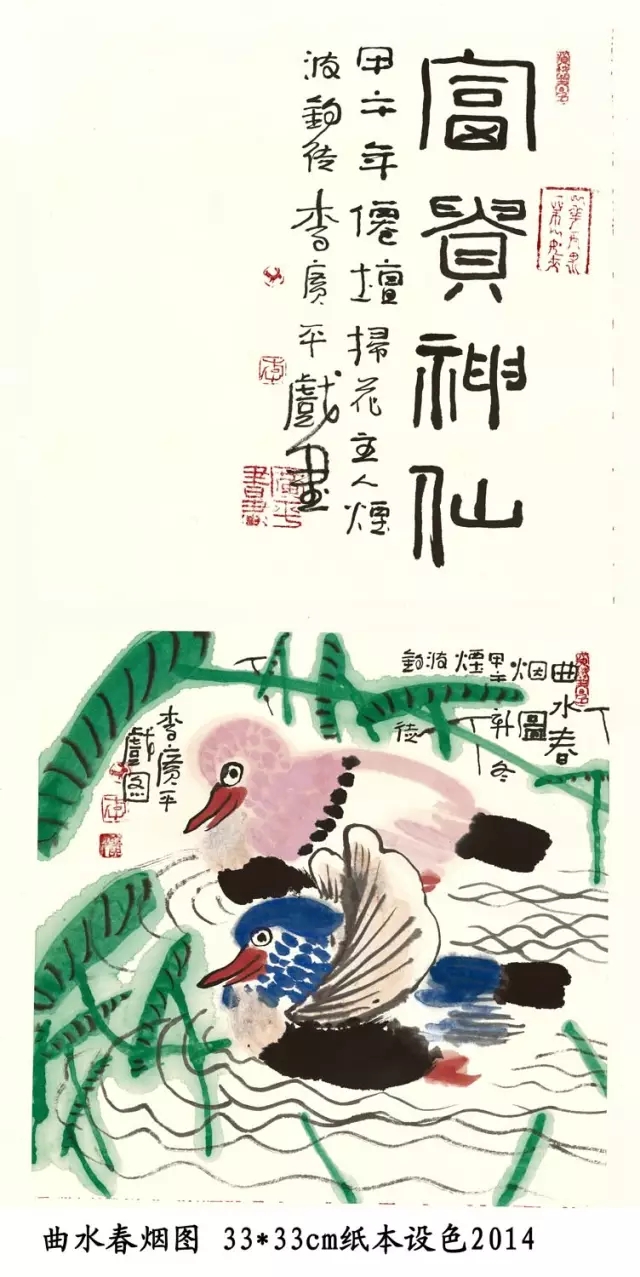 富貴神仙
甲午年僊壇掃花主人煙
波釣徒李廣平戲畫
廣平書畫
曲水春
烟圖
甲午冬
煙波
釣徒
李廣平
戲图
曲水春烟图 33*33cm纸本设色2014